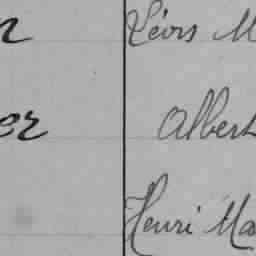 n Léon M
er Albert
Henri Ma